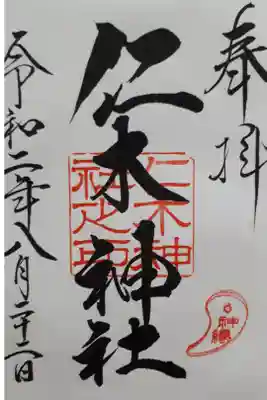 奉拝
仁木神社
仁木神
社之印
令和二年八月二十二日